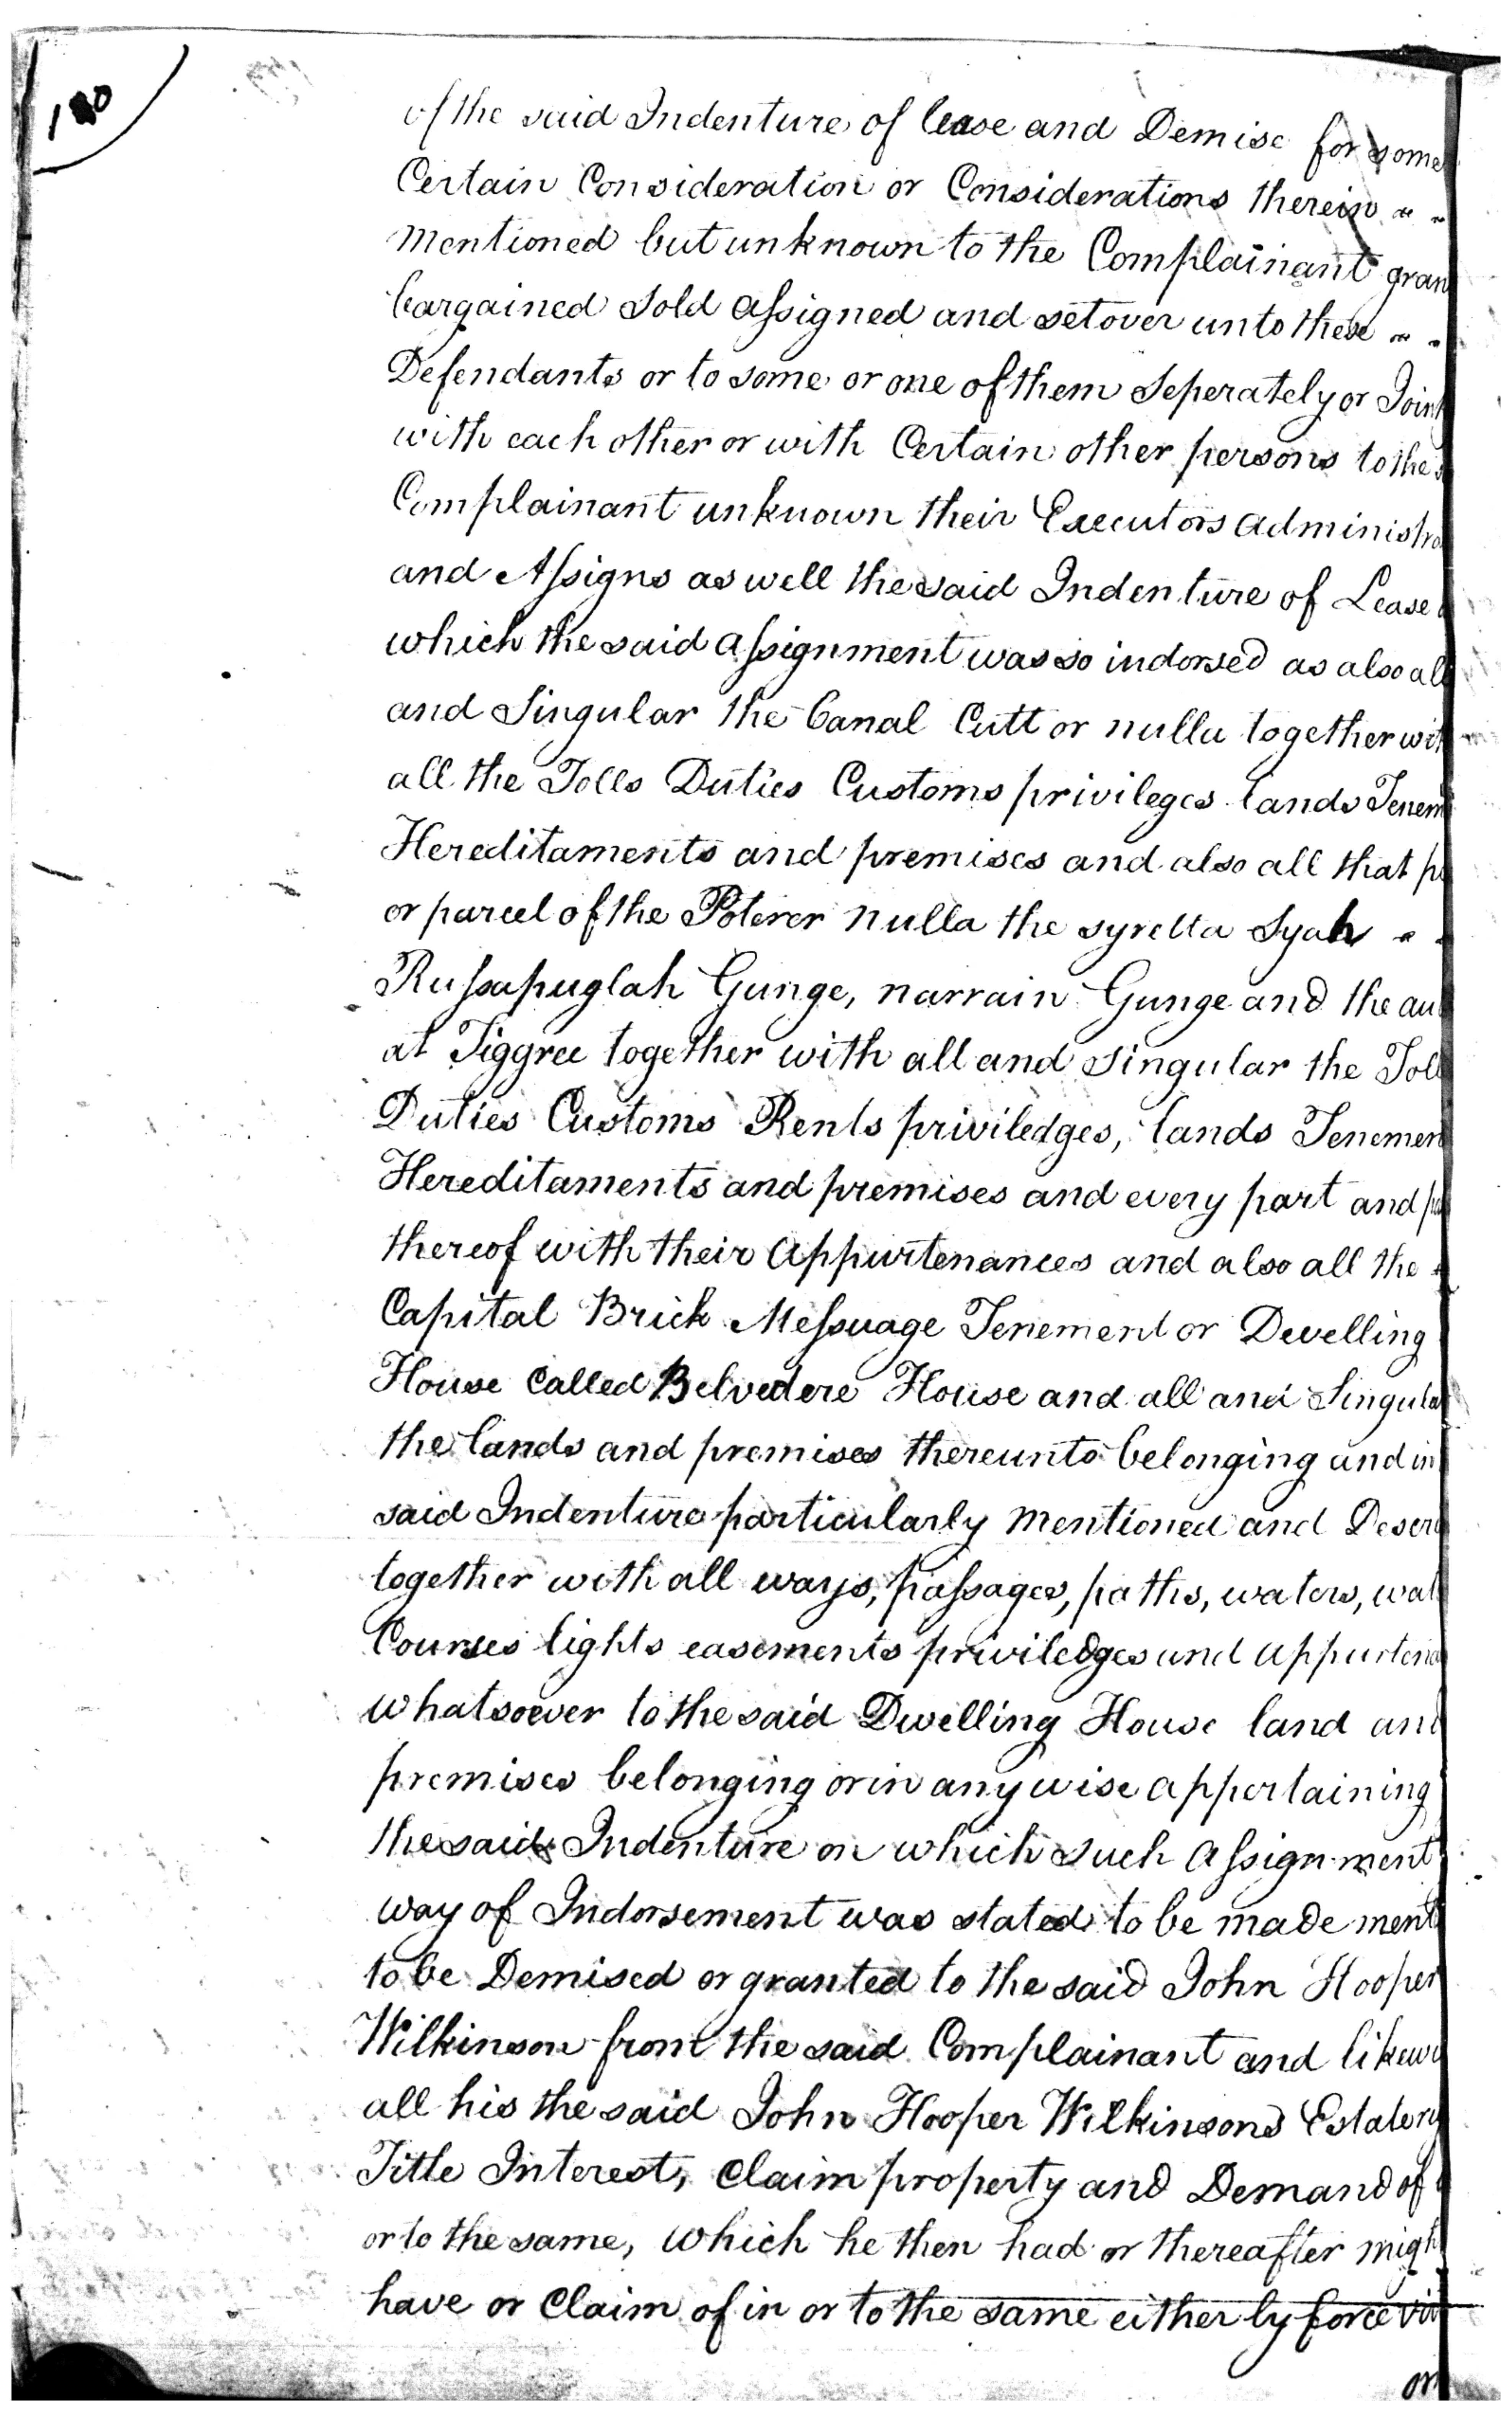 180
of the said Indenture of lease and Demise for some
Certain Consideration or Considerations therein
mentioned but unknown to the Complainant gran
bargained Sold assigned and set over unto these
Defendants or to some or one of them Seperately or Joint
with each other or with Certain other persons to the
Complainant unknown their Executors administra
and Assigns as well the said Indenture of Lease
which the said assignment was so indorsed as also all
and Singular the Canal Cutt or nulla together wit
all the Tolls Duties Customs privileges lands Tenem
Hereditaments and premises and also all that p
or parcel of the Poterer nulla the syretta Syah
Russapuglah Gunge, narrain Gunge and the au
at Jiggree together with all and singular the Toll
Duties Customs Rents priviledges, lands Tenemen
Hereditaments and premises and every part and pa
thereof with their appurtenances and also all the
Capital Brick Messuage Tenement or Dwelling
House Called Belvedere House and all and Singular
the lands and premises thereunto belonging and in
said Indenture particularly mentioned and Descri
together with all ways, passages, paths, waters, wat
Courses lights easements priviledges and appurtena
whatsoever to the said Dwelling House land and
premises belonging or in any wise appertaining
the said Indenture on which such assignment
way of Indorsement was stated to be made ment
to be Demised or granted to the said John Hooper
Wilkinson from the said Complainant and likewi
all his the said John Hooper Wilkinsons Estate
Title Interest, Claim property and Demand of
or to the same, which he then had or thereafter migh
have or Claim of in or to the same either by force vir
or